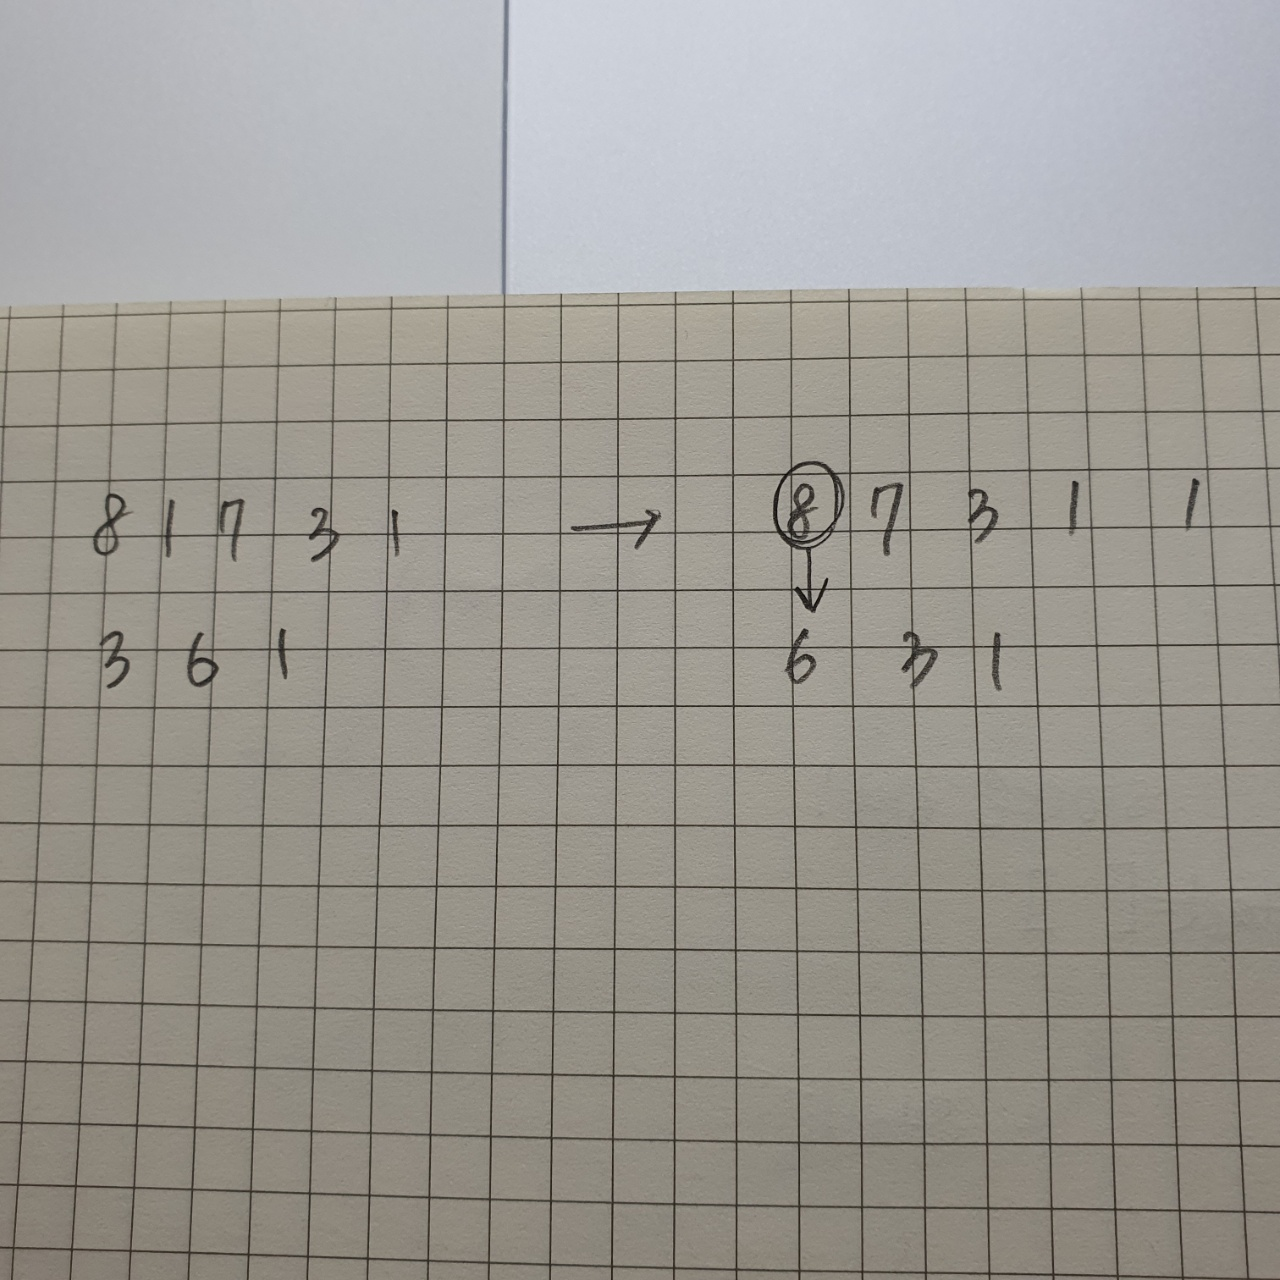 8 1 7 3 1 → 8 7 3 1 1
↓
3 6 1 6 3 1